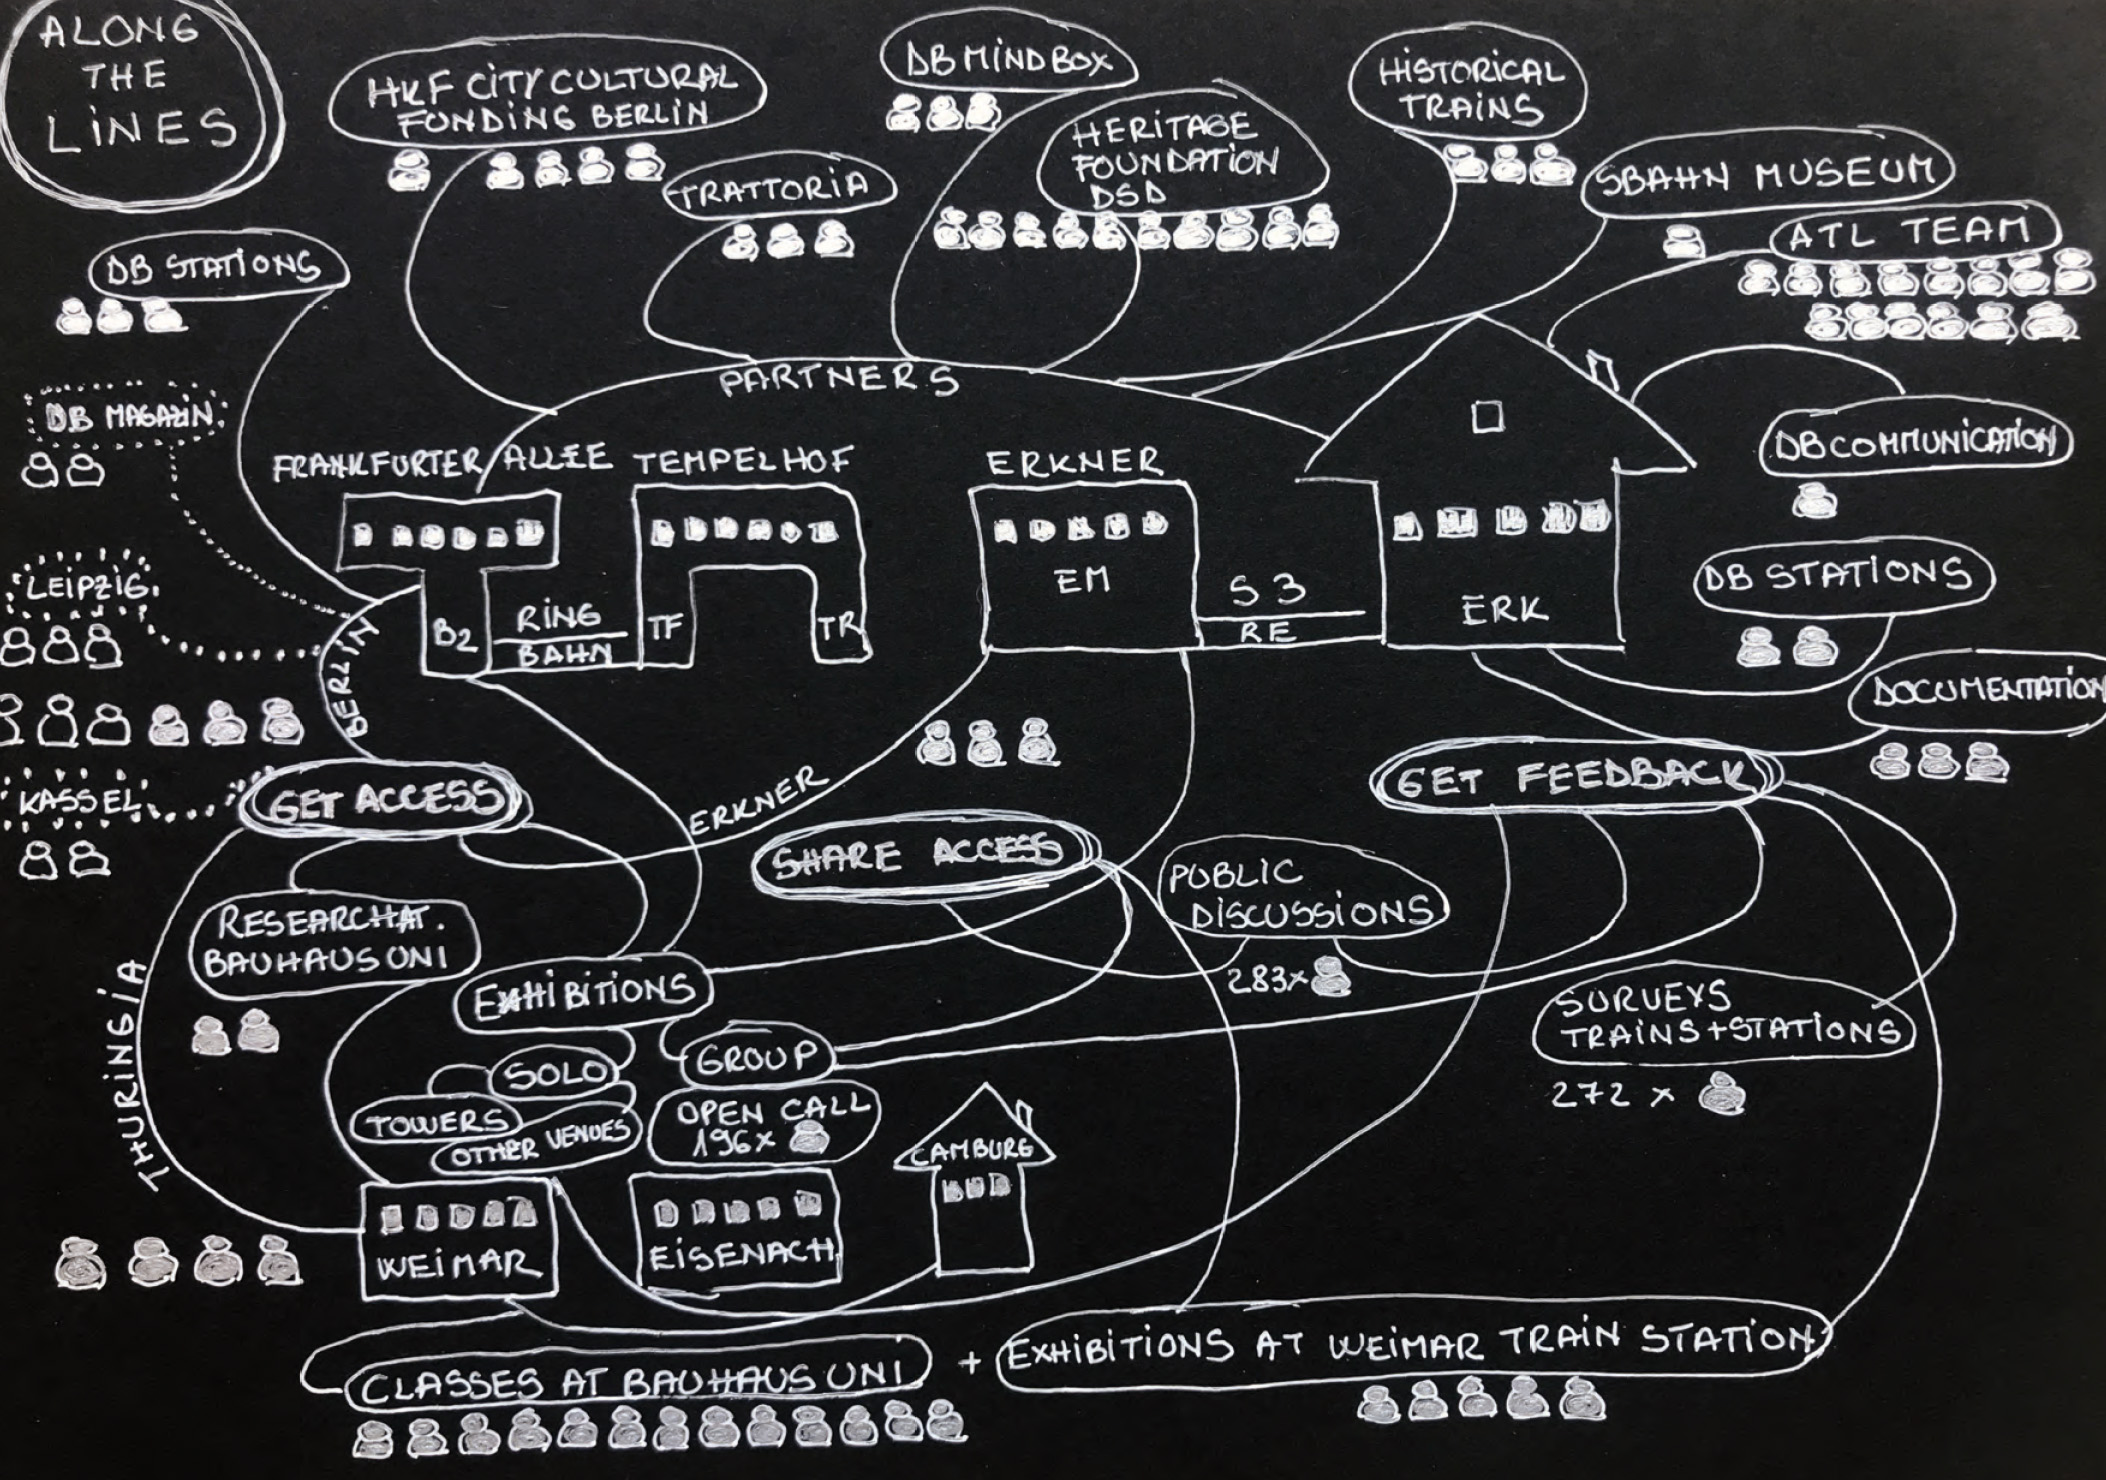 ALONG
THE
LINES
HKF CITY CULTURAL
FUNDING BERLIN
DB MINDBOX
HISTORICAL
TRAINS
HERITAGE
FOUNDATION
DSD
TRATTORIA
SBAHN MUSEUM
ATL TEAM
DB STATIONS
PARTNERS
DB MAGAZIN
DB COMMUNICATION
FRANKFURTER ALLEE
TEMPELHOF
ERKNER
LEIPZIG
B2
RING
BAHN
TF
TR
EM
S3
RE
ERK
DB STATIONS
BERLIN
DOCUMENTATION
KASSEL
GET ACCESS
ERKNER
SHARE ACCESS
GET FEEDBACK
PUBLIC
DISCUSSIONS
283x
RESEARCH AT.
BAUHAUS UNI
THURINGIA
EXHIBITIONS
SURVEYS
TRAINS+STATIONS
272 x
SOLO
GROUP
TOWERS
OTHER VENUES
OPEN CALL
196x
CAMBURG
WEIMAR
EISENACH
CLASSES AT BAUHAUS UNI
+
EXHIBITIONS AT WEIMAR TRAIN STATION